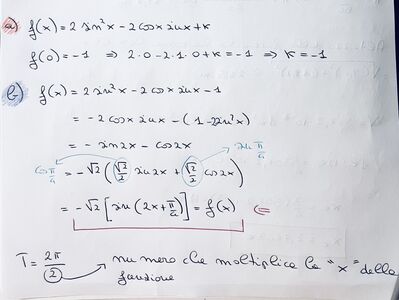 a) f(x) = 2 sin²x - 2 cosx sinx + k
f(0) = -1 ⇒ 2·0 - 2·1·0 + k = -1 ⇒ k = -1
b) f(x) = 2 sin²x - 2 cosx sinx - 1
= -2 cosx sinx - (1 - 2sin²x)
= - sin2x - cos2x
cos π/4 sin π/4
= -√2 (√2/2 sin2x + √2/2 cos2x)
= -√2 [sin (2x + π/4)] = f(x) ⇐
T = 2π/2 → numero che moltiplica la "x" della
funzione